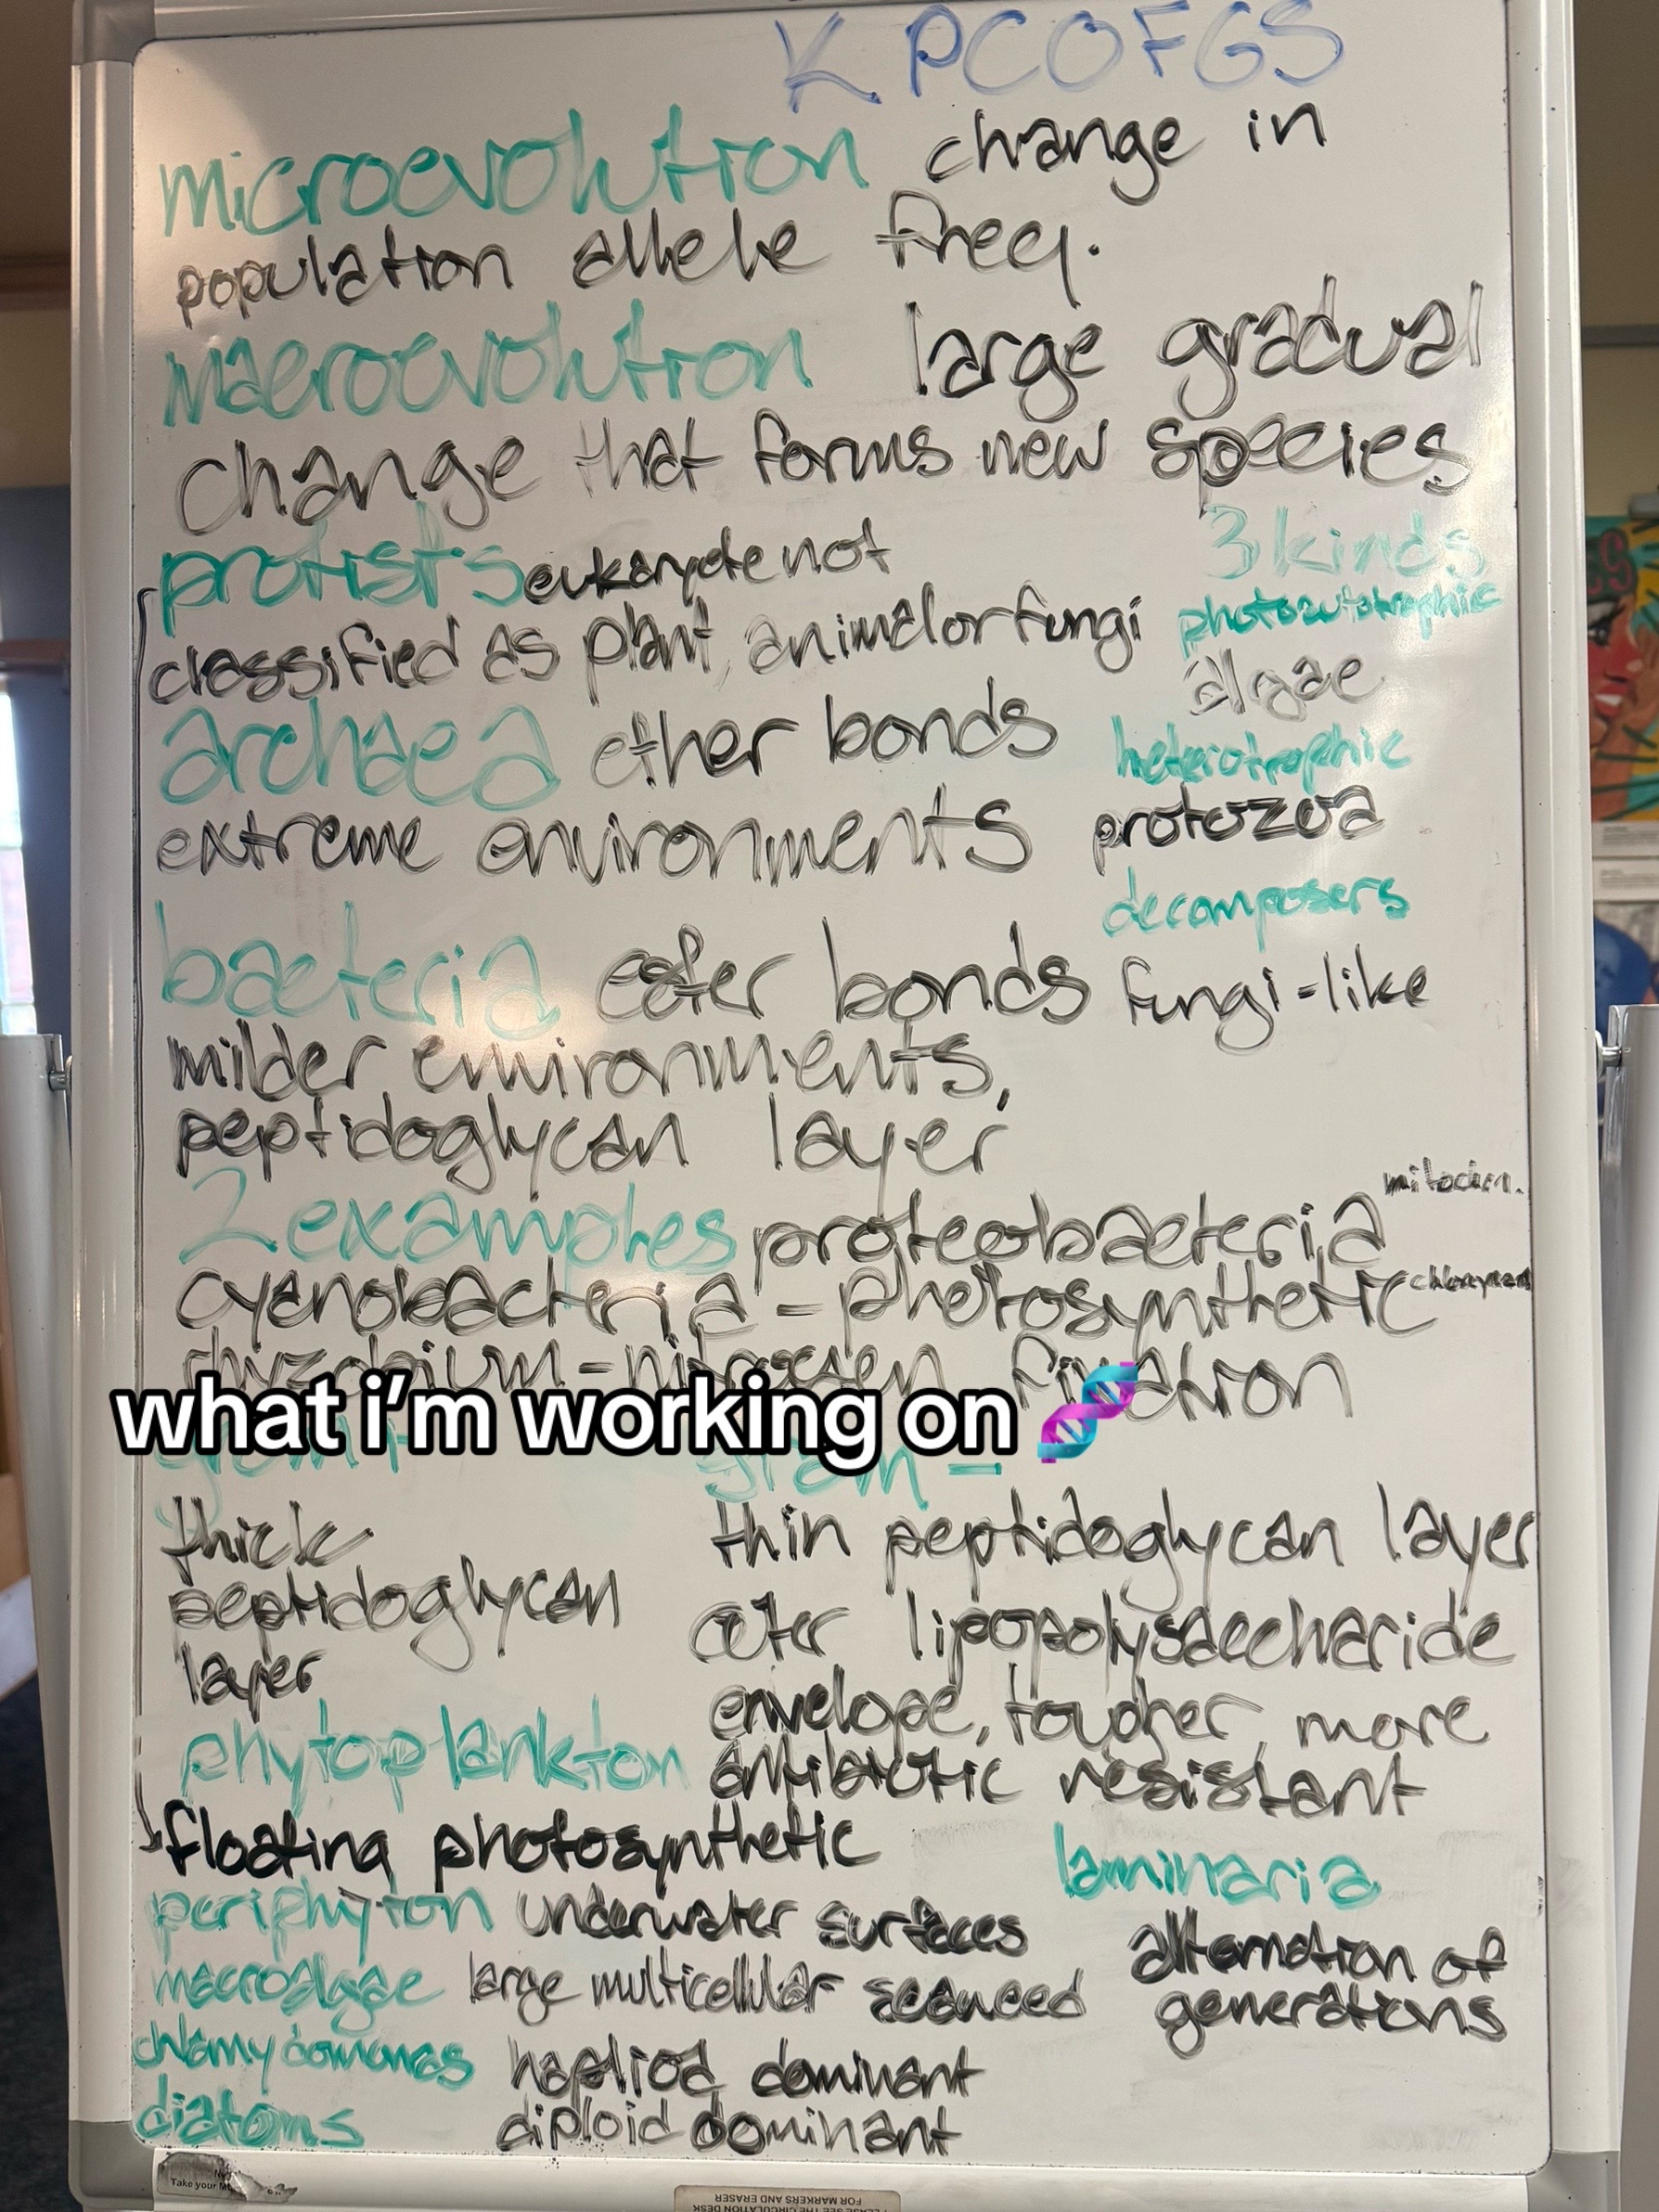 KPCOFGS
microevolution change in
population allele freq.
macroevolution large gradual
change that forms new species
protists eukaryote not
classified as plant, animal or fungi
3 kinds
photoautotrophic
algae
heterotrophic
protozoa
decomposers
fungi-like
archaea ether bonds
extreme environments
bacteria ester bonds
milder environments,
peptidoglycan layer
2 examples proteobacteria mitochn.
cyanobacteria - photosynthetic
rhyzobium - nitrogen fixation
what i'm working on 🧬
gram +
thick
peptidoglycan
layer
gram -
thin peptidoglycan layer
outer lipopolysaccharide
envelope, tougher, more
antibiotic resistant
phytoplankton
floating photosynthetic
periphyton underwater surfaces
macroalgae large multicellular seaweed
chlamydomonas hapliod dominant
diatoms diploid dominant
laminaria
alternation of
generations
Take your
PLEASE SEE THE CIRCULATION DESK
FOR MARKERS AND ERASER